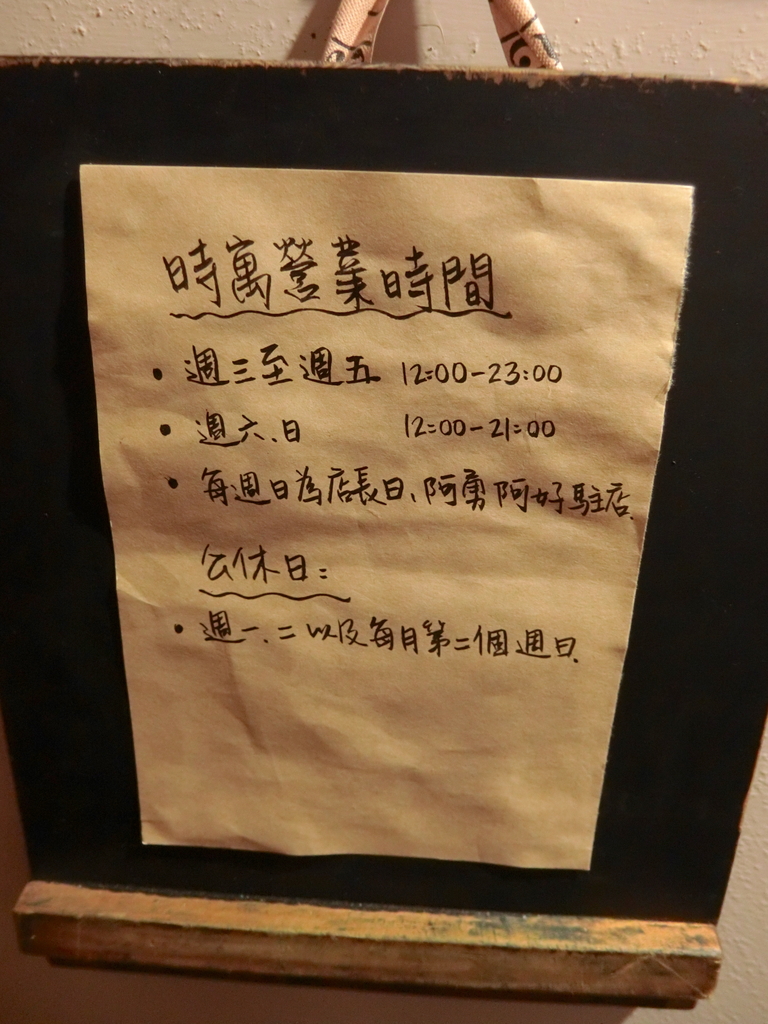 時寓營業時間
• 週三至週五 12:00-23:00
• 週六、日 12:00-21:00
• 每週日為店長日、阿勇阿好駐店.
公休日:
• 週一、二以及每月第二個週日.